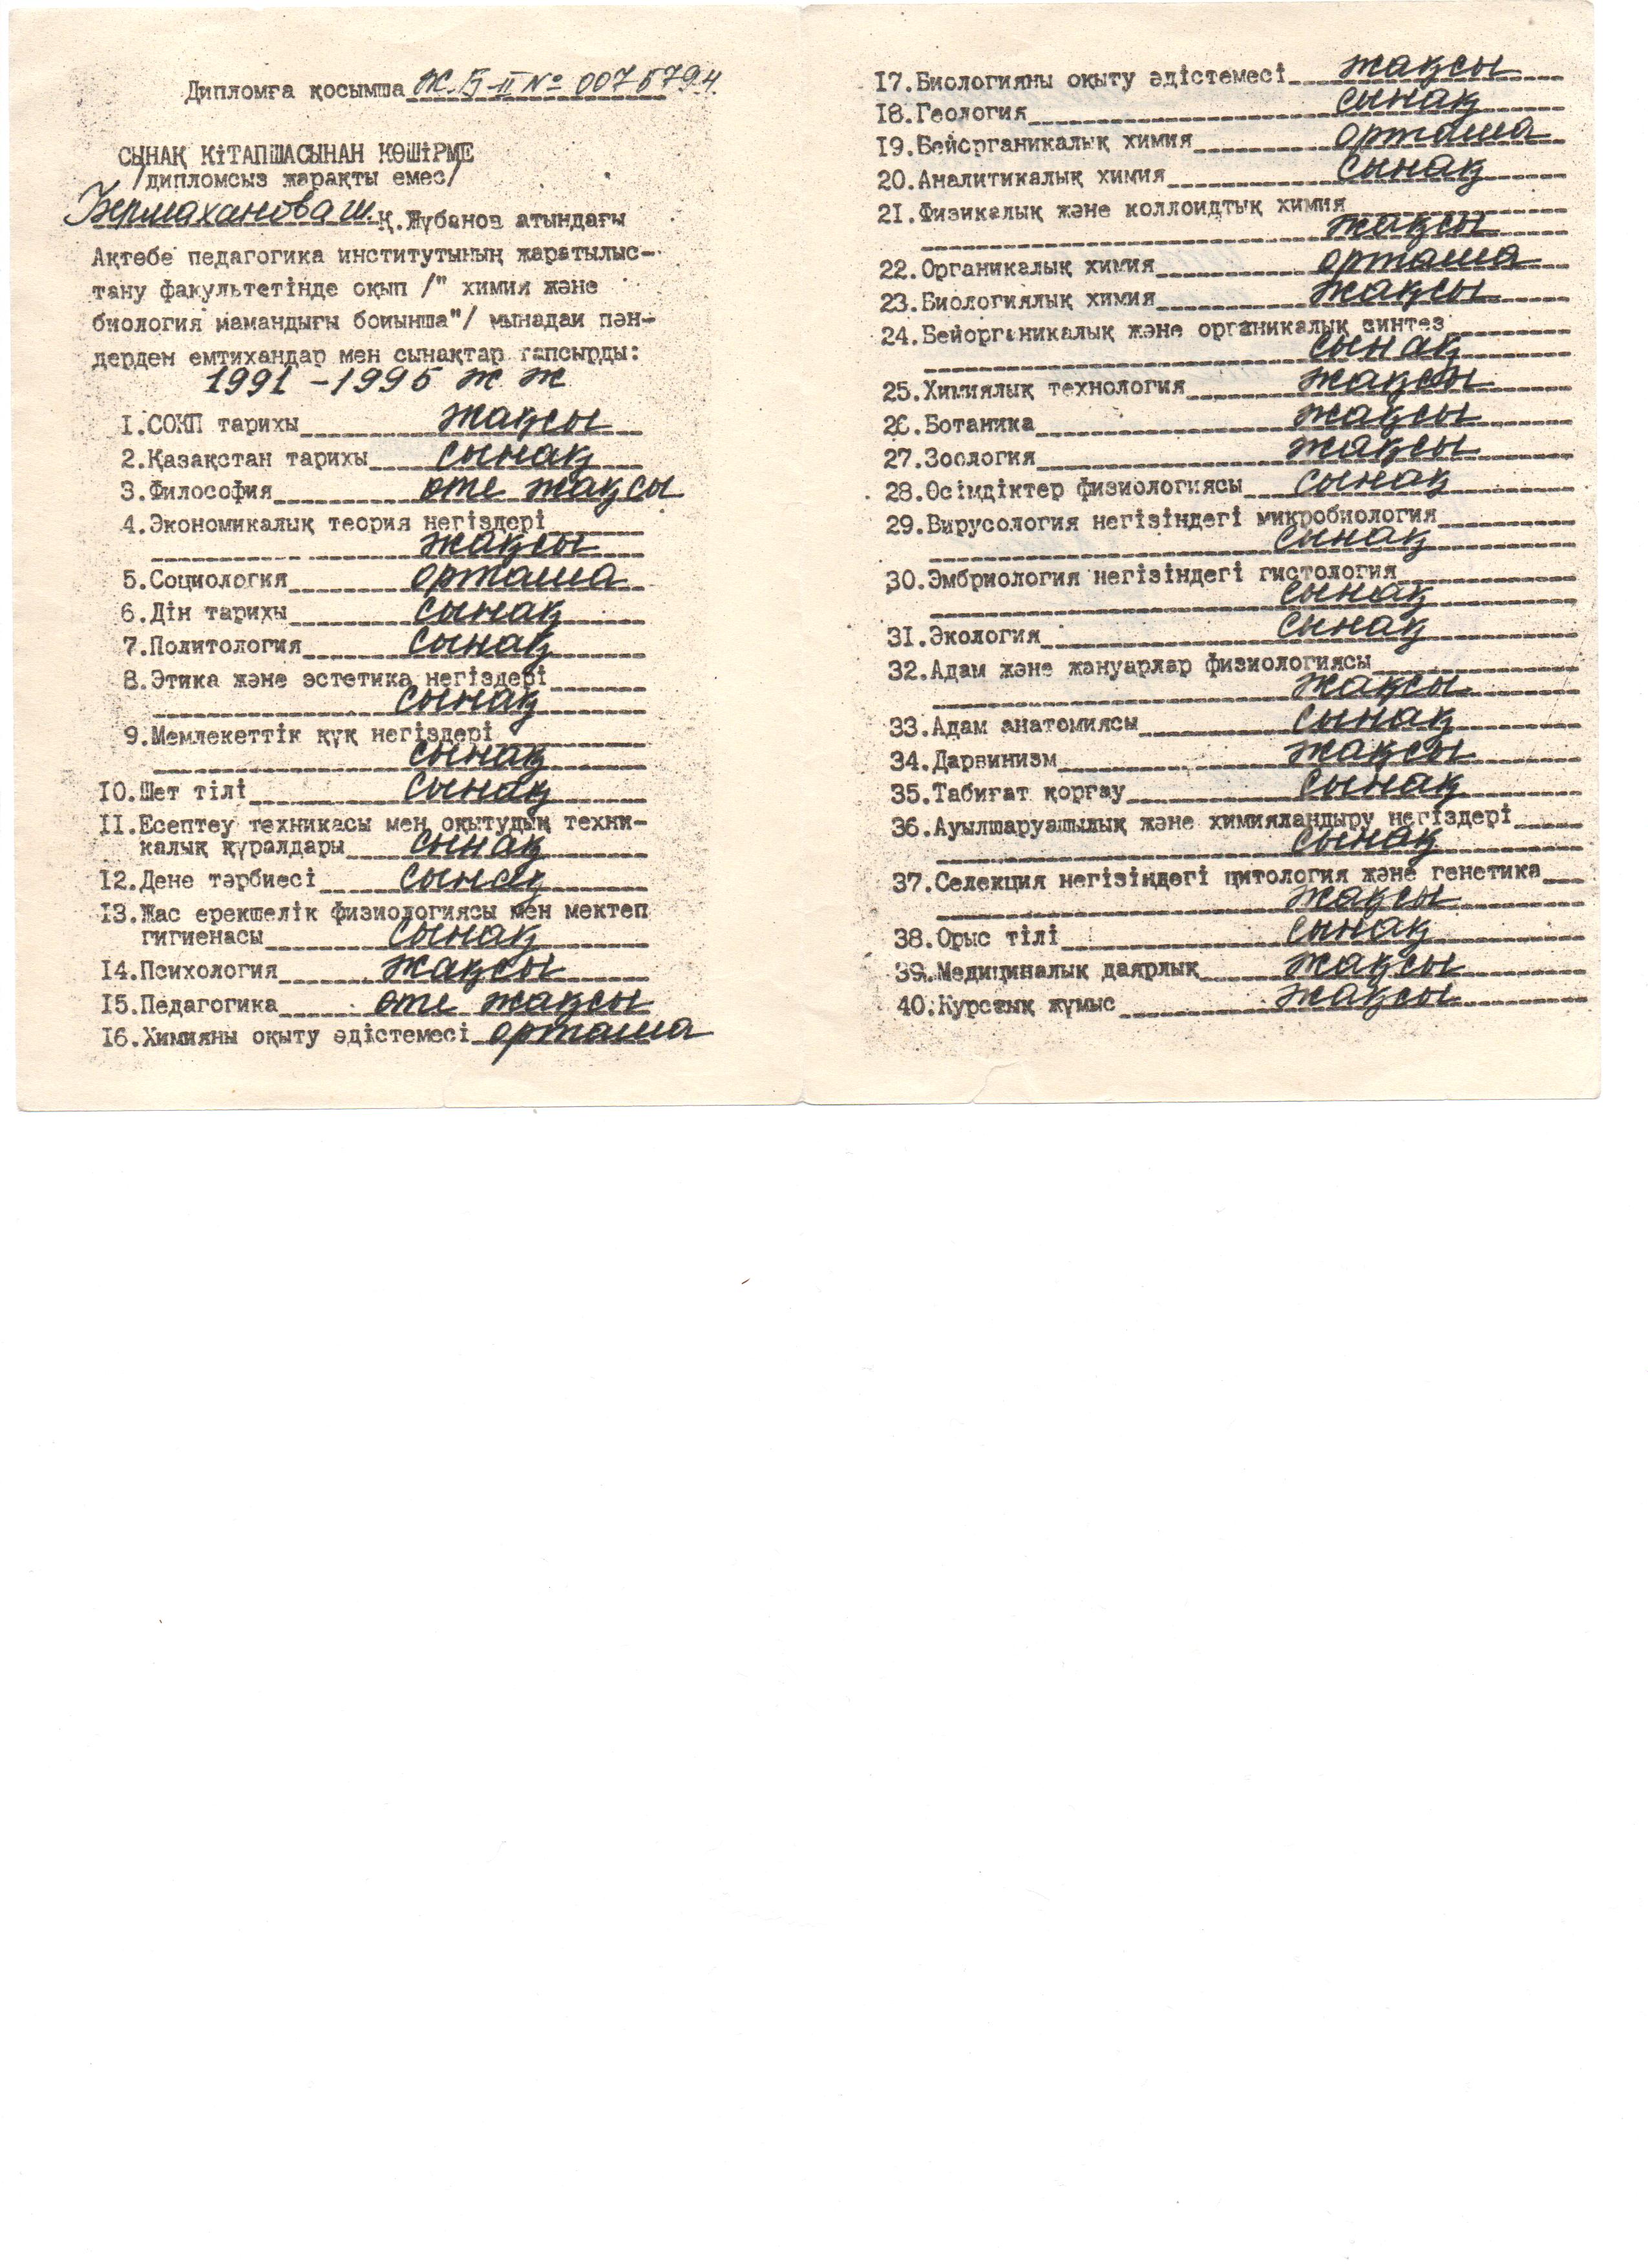 Дипломға қосымша Ж.Б-II № 0075794
СЫНАҚ КІТАПШАСЫНАН КӨШІРМЕ
/дипломсыз жарақты емес/
Бермаханова Ш. Қ.Жұбанов атындағы
Ақтөбе педагогика институтының жаратылыс-
тану факультетінде оқып /" химия және
биология мамандығы бойынша"/ мынадай пән-
дерден емтихандар мен сынақтар тапсырды:
1991-1995 ж ж
1.СОКП тарихы жақсы
2.Қазақстан тарихы сынақ
3.Философия өте жақсы
4.Экономикалық теория негіздері
жақсы
5.Социология орташа
6.Дін тарихы сынақ
7.Политология сынақ
8.Этика және эстетика негіздері
сынақ
9.Мемлекеттік құқ негіздері
сынақ
10.Шет тілі сынақ
11.Есептеу техникасы мен оқытудың техни-
калық құралдары сынақ
12.Дене тәрбиесі сынақ
13.Жас ерекшелік физиологиясы мен мектеп
гигиенасы сынақ
14.Психология жақсы
15.Педагогика өте жақсы
16.Химияны оқыту әдістемесі орташа
17.Биологияны оқыту әдістемесі жақсы
18.Геология сынақ
19.Бейорганикалық химия орташа
20.Аналитикалық химия сынақ
21.Физикалық және коллоидтық химия
жақсы
22.Органикалық химия орташа
23.Биологиялық химия жақсы
24.Бейорганикалық және органикалық синтез
сынақ
25.Химиялық технология жақсы
26.Ботаника жақсы
27.Зоология жақсы
28.Өсімдіктер физиологиясы сынақ
29.Вирусология негізіндегі микробиология
сынақ
30.Эмбриология негізіндегі гистология
сынақ
31.Экология сынақ
32.Адам және жануарлар физиологиясы
жақсы
33.Адам анатомиясы сынақ
34.Дарвинизм жақсы
35.Табиғат қорғау сынақ
36.Ауылшаруашылық және химияландыру негіздері
сынақ
37.Селекция негізіндегі цитология және генетика
жақсы
38.Орыс тілі сынақ
39.Медициналық даярлық жақсы
40.Курстық жұмыс жақсы